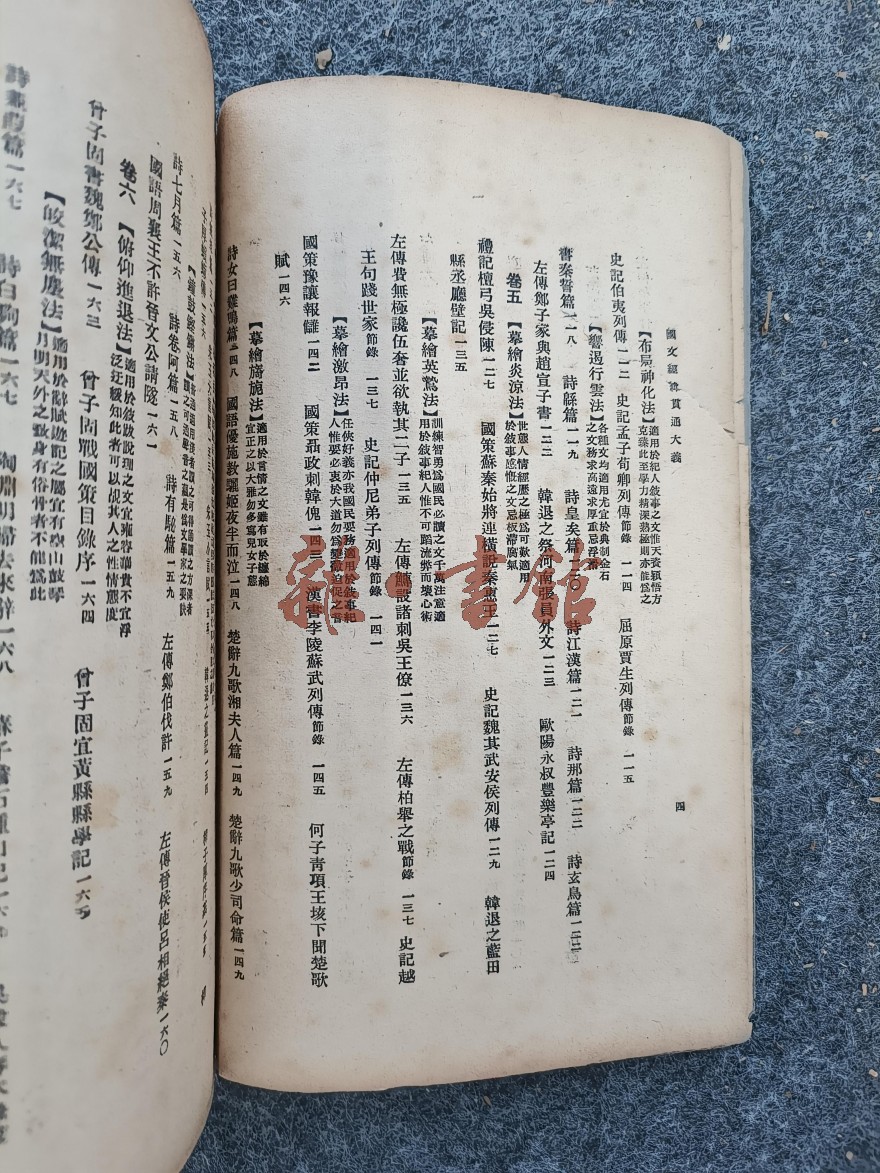 國文經緯貫通大義
四
【布局神化法】適用於紀人敍事之文惟天資穎悟方
克臻此至學力精深熟極則亦能爲之
史記伯夷列傳一一二 史記孟子荀卿列傳節錄 一一四 屈原賈生列傳節錄 一一五
【響遏行雲法】各種文均適用尤宜於典制金石
之文務求高遠求厚重忌浮
書秦誓篇一一八 詩緜篇一一九 詩皇矣篇一二〇 詩江漢篇一二一 詩那篇一二二 詩玄鳥篇一二二
左傳鄭子家與趙宣子書一二三 韓退之祭河南張員外文一二三 歐陽永叔豐樂亭記一二四
卷五 【摹繪炎涼法】世態人情經歷之極爲可歎適用
於敍事感慨之文忌板滯腐氣
禮記檀弓吳侵陳一二七 國策蘇秦始將連橫說秦惠王一二七 史記魏其武安侯列傳一二九 韓退之藍田
縣丞廳壁記一三五
【摹繪英鷙法】訓練智勇爲國民必讀之文千萬注意適
用於敍事紀人惟不可蹈流弊而壞心術
左傳費無極讒伍奢並欲執其二子一三五 左傳鱄設諸刺吳王僚一三六 左傳柏舉之戰節錄 一三七 史記越
王句踐世家節錄 一三七 史記仲尼弟子列傳節錄 一四一
【摹繪激昂法】任俠好義亦我國民要務適用於敍事紀
人惟要必衷於大道勿爲
國策豫讓報讎一四二 國策聶政刺韓傀一四三 漢書李陵蘇武列傳節錄 一四五 何子青項王垓下聞楚歌
賦一四六
【摹繪旖旎法】適用於言情之文雖有取於纏綿
宜正之以大雅勿多寫兒女子態
詩女曰雞鳴篇一四八 國語優施教驪姬夜半而泣一四八 楚辭九歌湘夫人篇一四九 楚辭九歌少司命篇一四九
新口書館
詩七月篇一五六 詩卷阿篇一五八 詩有駜篇一五九 左傳鄭伯伐許一五九 左傳晉侯使呂相絕秦一六〇
國語周襄王不許晉文公請隧一六一
卷六 【俯仰進退法】適用於敍敭說理之文宜雍容華貴不宜浮
泛迂緩知此者可以覘其人之性情態度
曾子固書魏鄭公傳一六三 曾子固戰國策目錄序一六四 曾子固宜黃縣縣學記一六五
【皎潔無塵法】適用於辭賦遊記之屬宜有空山鼓琴
月明天外之致身有俗骨者不能爲此
一六七 詩白駒篇一六七 陶淵明歸去來辭一六八